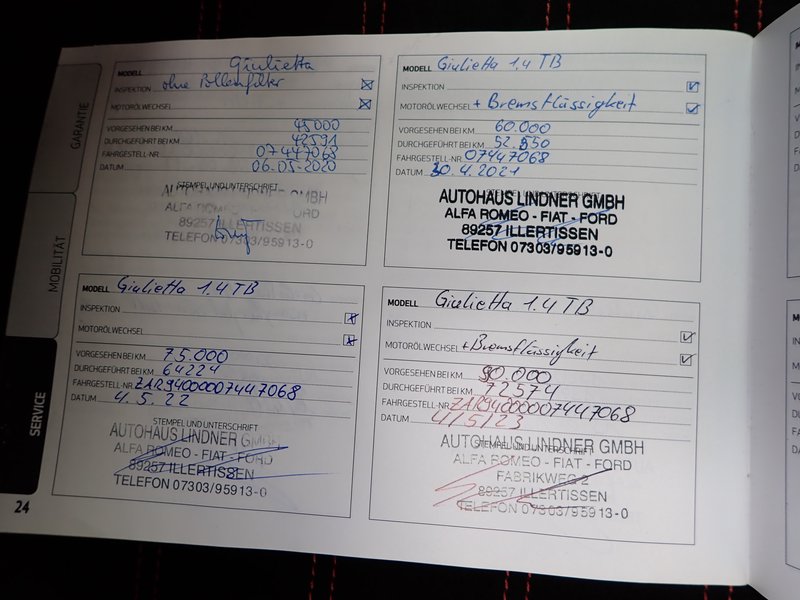 GARANTIE
MOBILITÄT
SERVICE
24
MODELL Giulietta
ohne Pollenfilter
INSPEKTION
MOTORÖLWECHSEL
VORGESEHEN BEI KM 45000
DURCHGEFÜHRT BEI KM 42591
FAHRGESTELL-NR 07447068
DATUM 06.05-2020
STEMPEL UND UNTERSCHRIFT
AUTOHAUS LINDNER GMBH
ALFA ROMEO - FIAT - FORD
89257 ILLERTISSEN
TELEFON 07303/95913-0
MODELL Giulietta 1,4 TB
INSPEKTION
MOTORÖLWECHSEL + Bremsflüssigkeit
VORGESEHEN BEI KM 60.000
DURCHGEFÜHRT BEI KM 52.550
FAHRGESTELL-NR. 07447068
DATUM 30.4.2021
STEMPEL UND UNTERSCHRIFT
AUTOHAUS LINDNER GMBH
ALFA ROMEO - FIAT - FORD
89257 ILLERTISSEN
TELEFON 07303/95913-0
MODELL Giulietta 1.4 TB
INSPEKTION
MOTORÖLWECHSEL
VORGESEHEN BEI KM 75.000
DURCHGEFÜHRT BEI KM 64224
FAHRGESTELL-NR. ZAR94000007447068
DATUM 4.5.22
STEMPEL UND UNTERSCHRIFT
AUTOHAUS LINDNER GMBH
ALFA ROMEO - FIAT - FORD
89257 ILLERTISSEN
TELEFON 07303/95913-0
MODELL Giulietta 1.4 TB
INSPEKTION
MOTORÖLWECHSEL +Bremsflüssigkeit
VORGESEHEN BEI KM 90.000
DURCHGEFÜHRT BEI KM 72574
FAHRGESTELL-NR. ZAR94000007447068
DATUM 4/5/23
STEMPEL UND UNTERSCHRIFT
AUTOHAUS LINDNER GMBH
ALFA ROMEO - FIAT - FORD
FABRIKWEG 2
89257 ILLERTISSEN
TELEFON 07303/95913-0